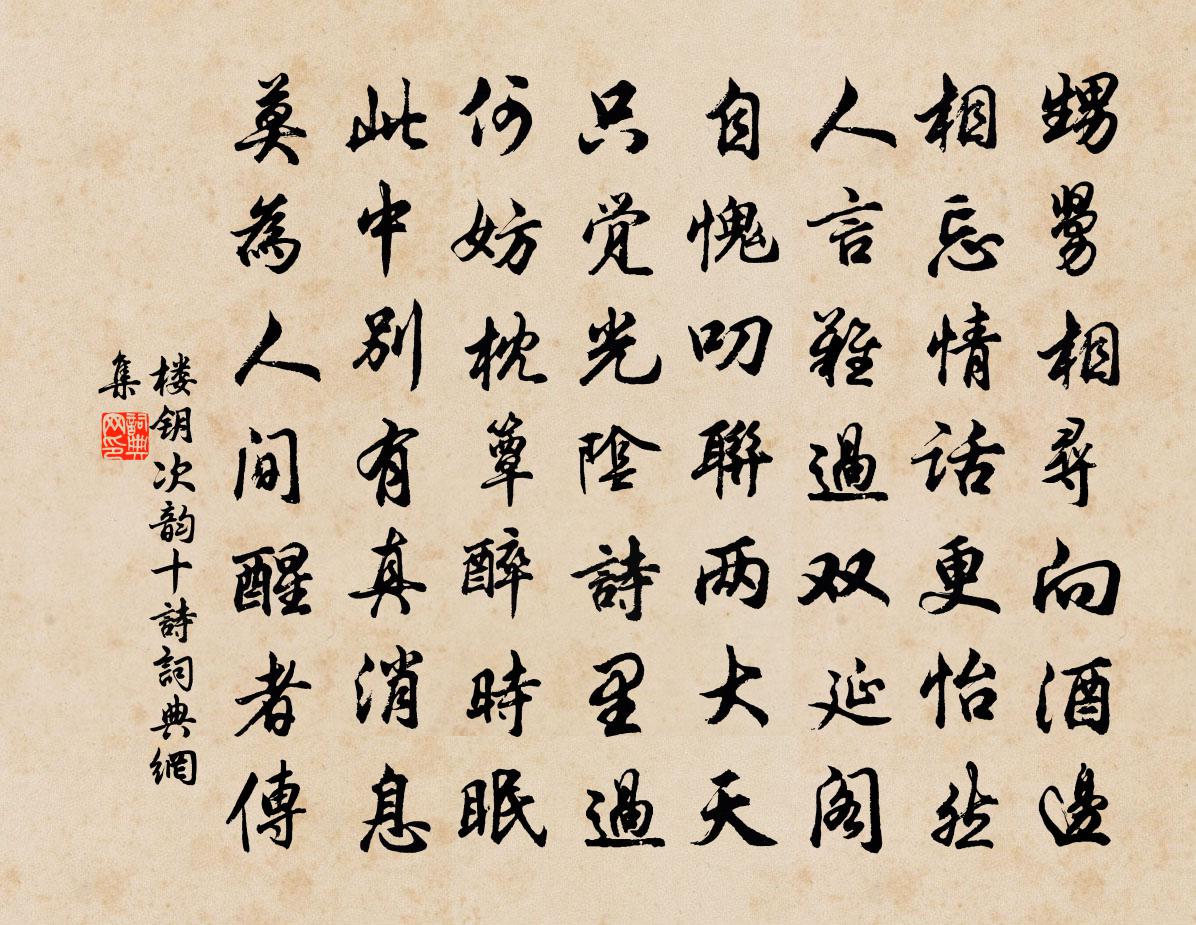 甥舅相尋向酒邊
相忘情話更怡然
人言難過双延阁
自愧叨聯两大天
只觉光陰詩里過
何妨枕簟醉時眠
此中别有真消息
莫為人间醒者傳
楼钥次韵十詩詞典網
集
詞典网印